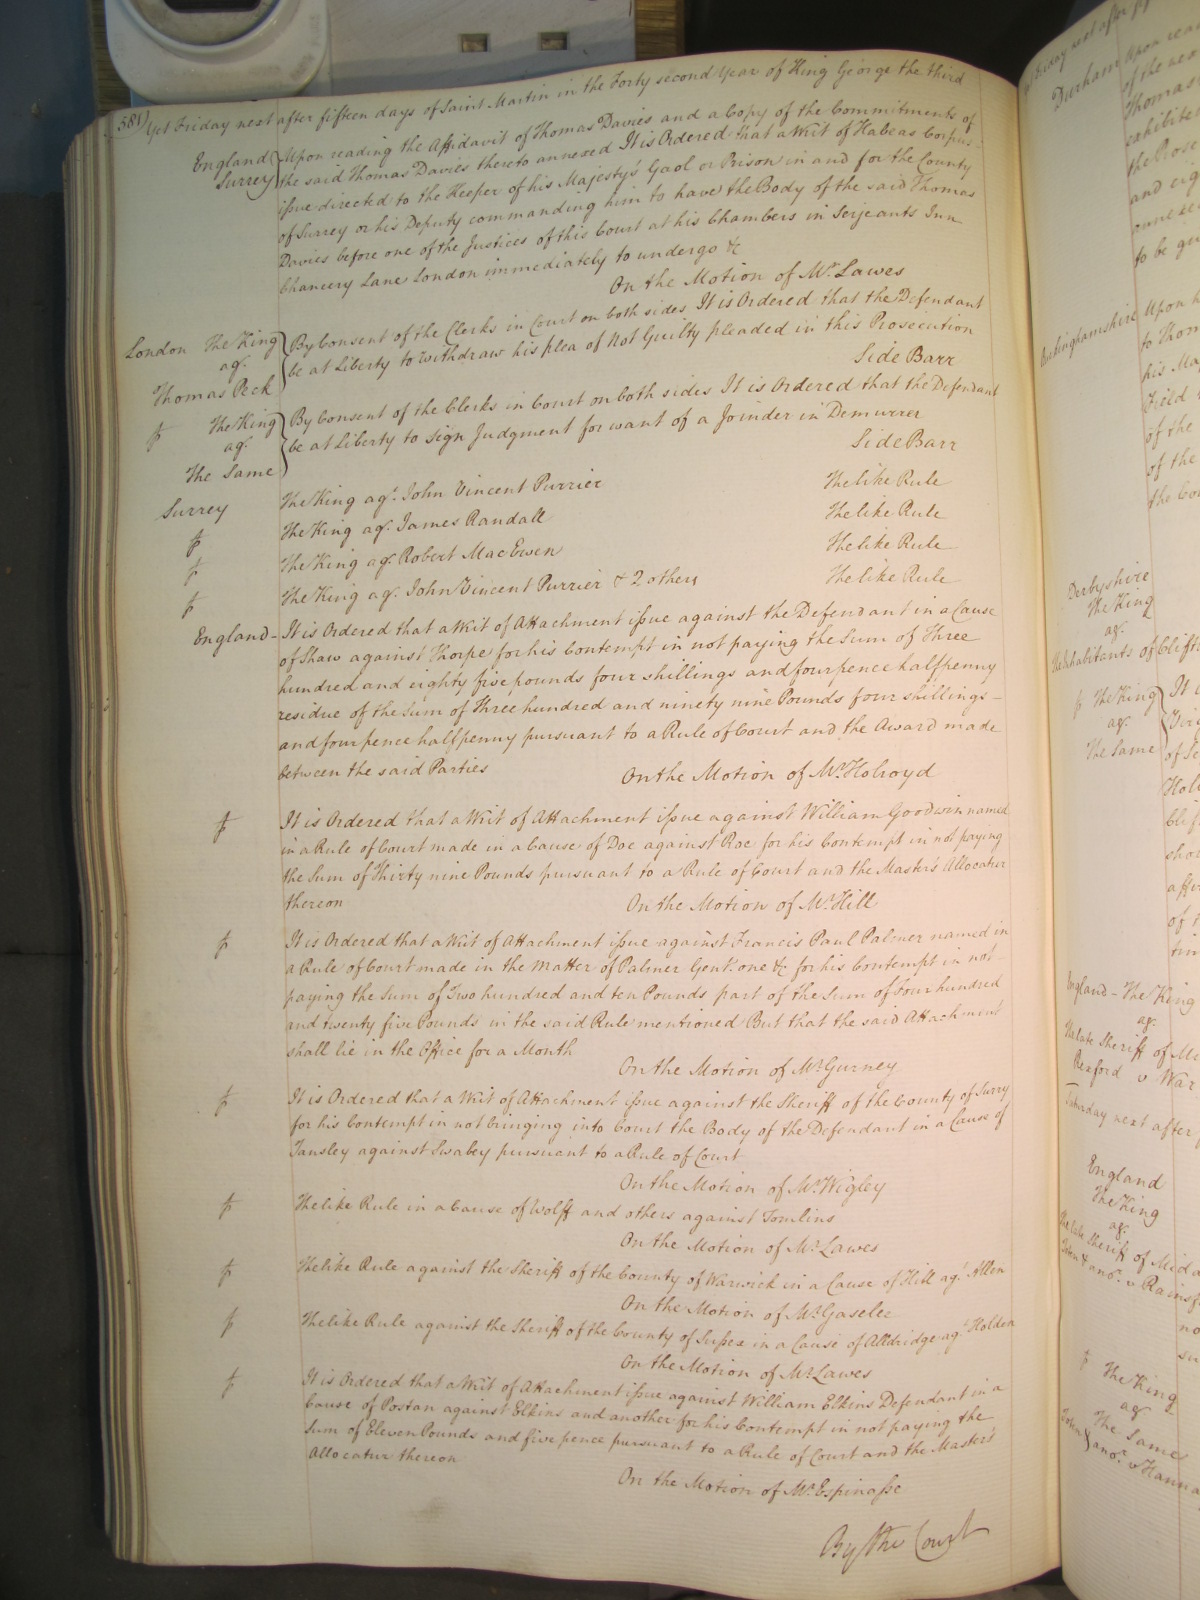 581) Yet Friday next after fifteen days of Saint Martin in the Forty second Year of King George the third
England
Surrey
Upon reading the Affidavit of Thomas Davies and a Copy of the Commitments of
the said Thomas Davies thereto annexed It is Ordered that a Writ of Habeas Corpus
issue directed to the Keeper of his Majesty's Gaol or Prison in and for the County
of Surrey or his Deputy commanding him to have the Body of the said Thomas
Davies before one of the Justices of this Court at his Chambers in Serjeants Inn
Chancery Lane London immediately to undergo &c
On the Motion of Mr. Lawes
London The King
agt.
Thomas Peck
By Consent of the Clerks in Court on both sides It is Ordered that the Defendant
be at Liberty to withdraw his plea of Not Guilty pleaded in this Prosecution
Side Barr
The King
agt.
The Same
By Consent of the Clerks in Court on both sides It is Ordered that the Defendant
be at Liberty to sign Judgment for want of a Joinder in Demurrer
Side Barr
Surrey The King agt. John Vincent Purrier The like Rule
The King agt. James Randall The like Rule
The King agt. Robert Mac Ewen The like Rule
The King agt. John Vincent Purrier & 2 others The like Rule
England - It is Ordered that a Writ of Attachment issue against the Defendant in a Cause
of Shaw against Thorpe for his Contempt in not paying the Sum of Three
hundred and eighty five pounds four shillings and fourpence halfpenny
residue of the Sum of Three hundred and ninety nine Pounds four shillings -
and fourpence halfpenny pursuant to a Rule of Court and the Award made
between the said Parties
On the Motion of Mr. Holroyd
It is Ordered that a Writ of Attachment issue against William Goodwin named
in a Rule of Court made in a Cause of Doe against Roe for his Contempt in not paying
the Sum of Thirty nine Pounds pursuant to a Rule of Court and the Master's Allocatur
thereon
On the Motion of Mr. Hill
It is Ordered that a Writ of Attachment issue against Francis Paul Palmer named in
a Rule of Court made in the Matter of Palmer Gent. one &c for his Contempt in not
paying the Sum of Two hundred and ten Pounds part of the Sum of Four hundred
and twenty five Pounds in the said Rule mentioned But that the said Attachment
shall lie in the Office for a Month
On the Motion of Mr. Gurney
It is Ordered that a Writ of Attachment issue against the Sheriff of the County of Surry
for his Contempt in not bringing into Court the Body of the Defendant in a Cause of
Tansley against Swabey pursuant to a Rule of Court
On the Motion of Mr. Wigley
The like Rule in a Cause of Wolff and others against Tomlins
On the Motion of Mr. Lawes
The like Rule against the Sheriff of the County of Warwick in a Cause of Hill agt. Allen
On the Motion of Mr. Gaselee
The like Rule against the Sheriff of the County of Sussex in a Cause of Alldridge agt. Holden
On the Motion of Mr. Lawes
It is Ordered that a Writ of Attachment issue against William Elkins Defendant in a
Cause of Postan against Elkins and another for his Contempt in not paying the
Sum of Eleven Pounds and five pence pursuant to a Rule of Court and the Master's
Allocatur thereon
On the Motion of Mr. Espinasse
By the Court
Durham Upon
of the
Thomas
exhibited
and
to be
Buckinghamshire Upon
to Thom
his Ma
of the
of the
the
Derbyshire
The King
agt.
Inhabitants of Clift
The King It
agt.
The Same
of
England - The King
agt.
The late Sheriff of
v War
Saturday next after
England
The King
agt.
The late Sheriff of Midd
v Rains
The King
agt.
The Same
v Hanna